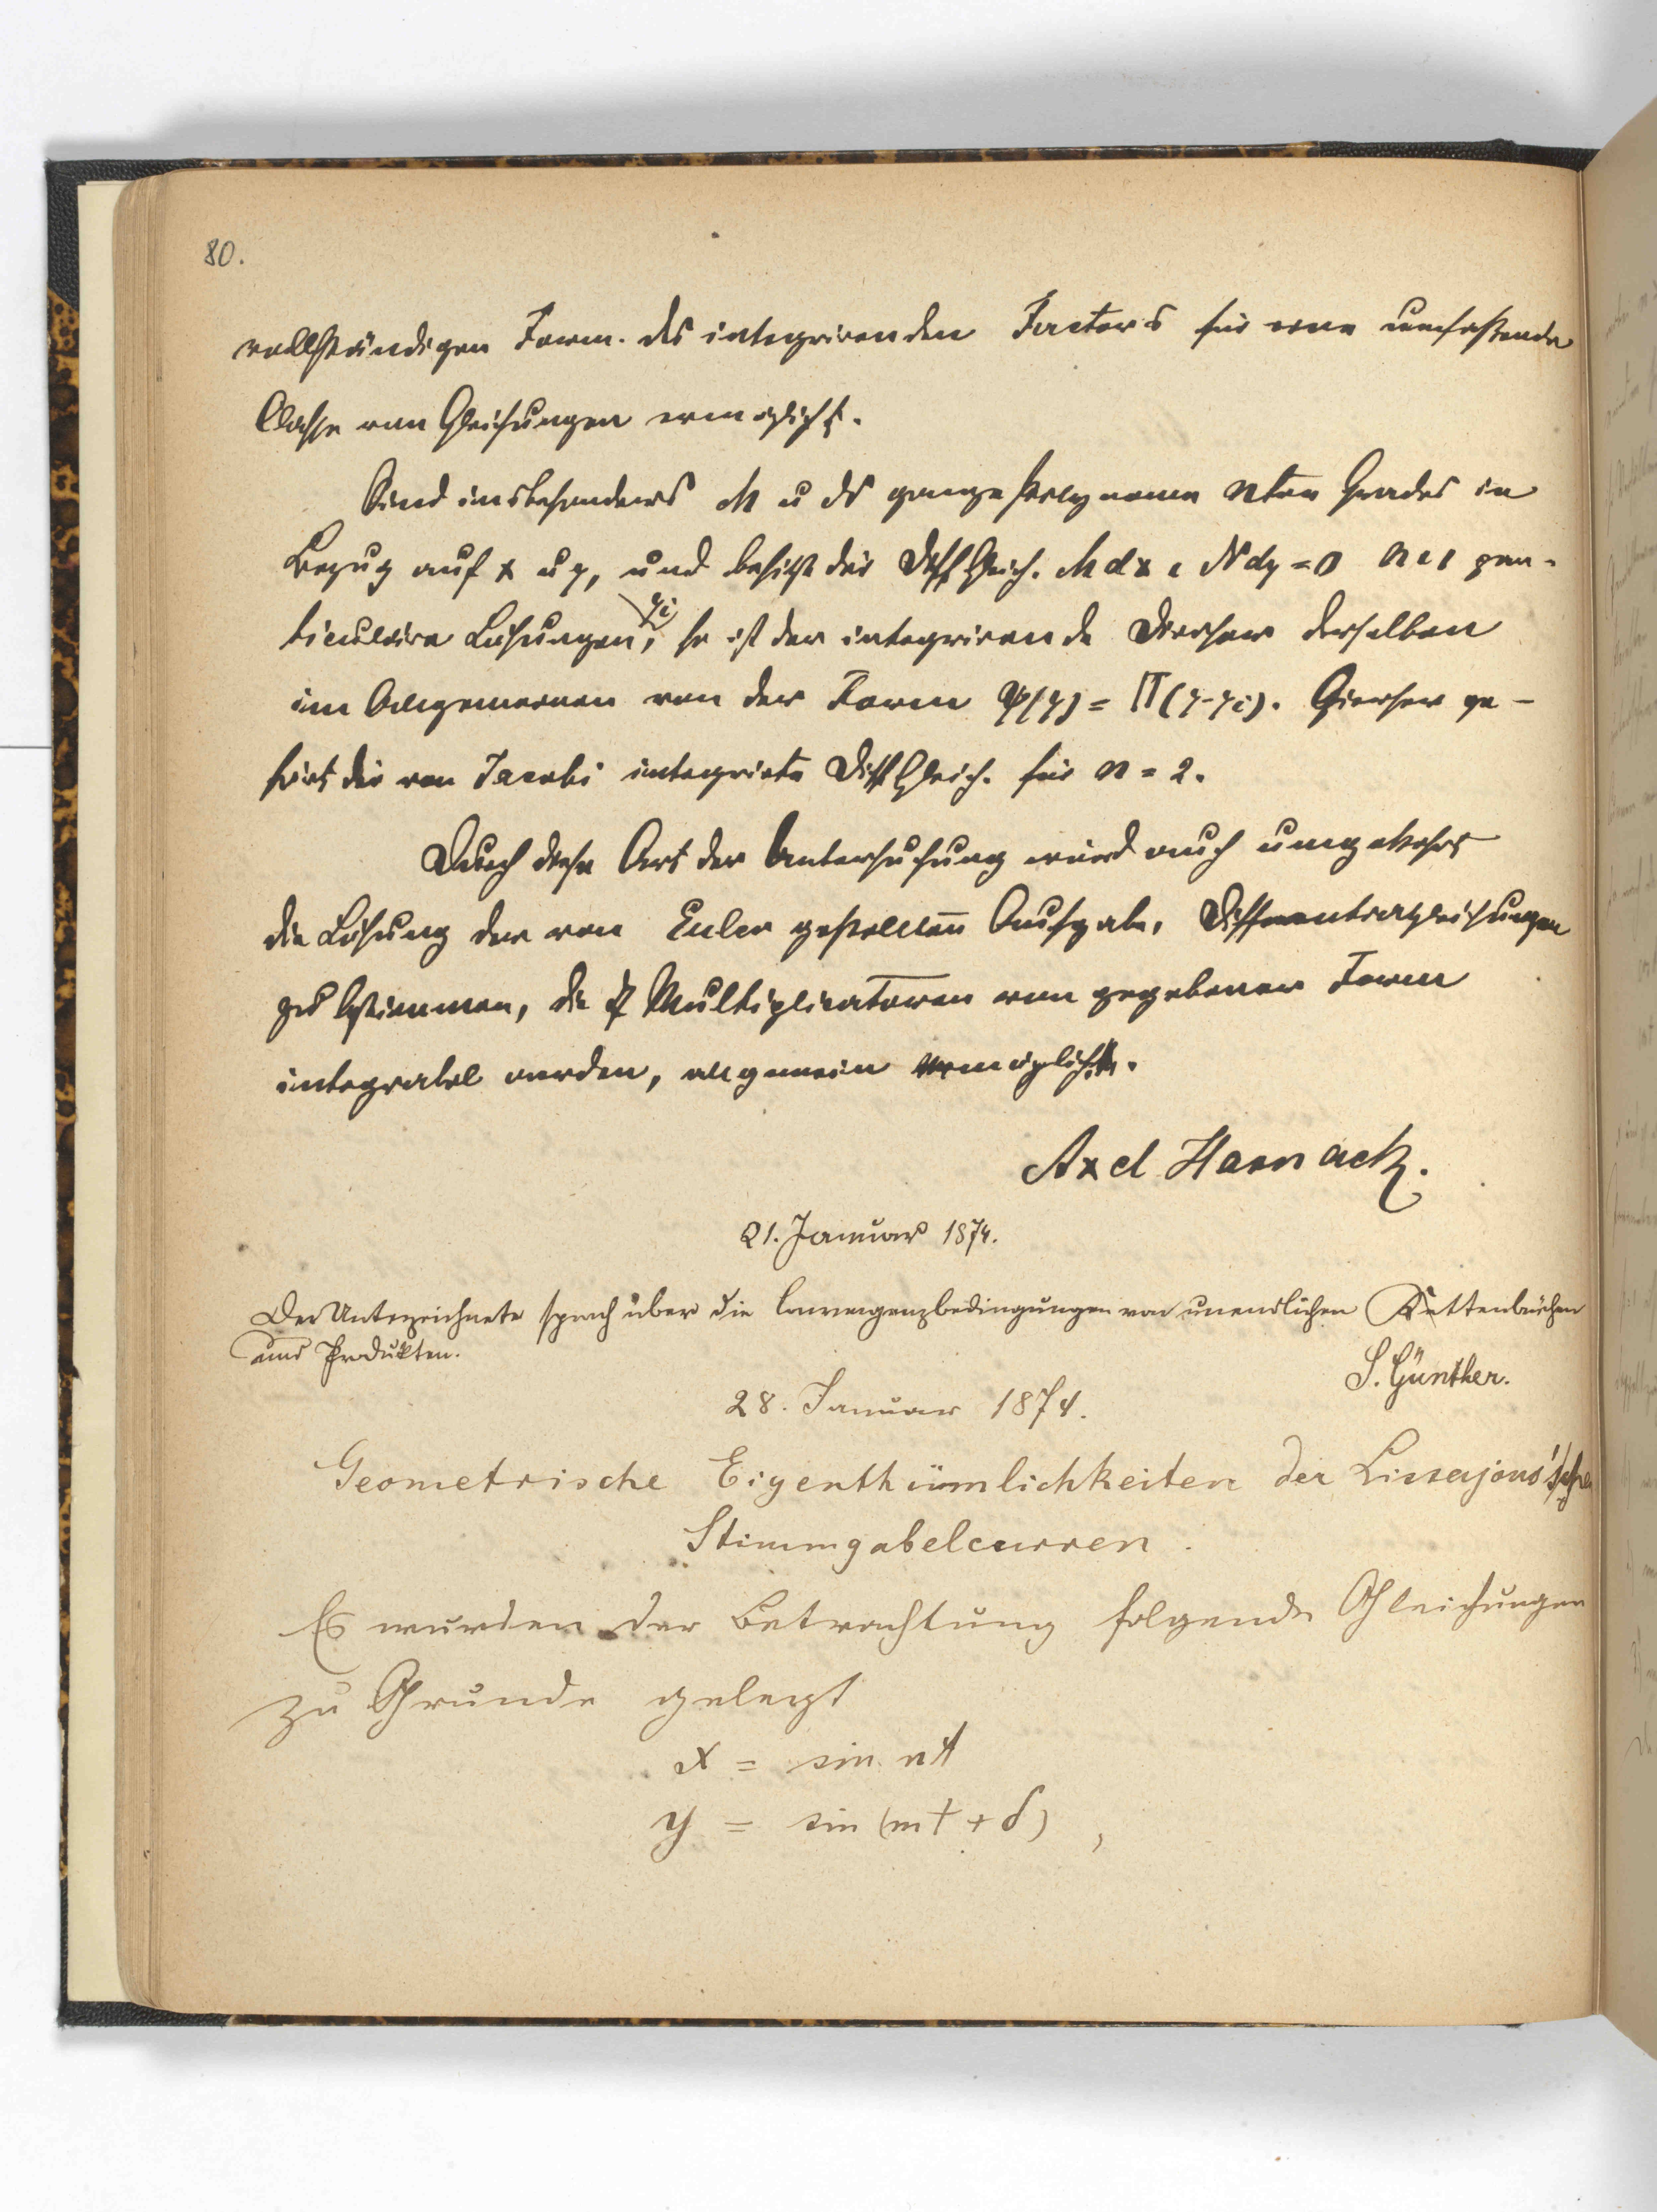 80.
vollständigen Form des integrirenden Factors für eine umfassende
Classe von Gleichungen ermöglicht.
Sind insbesondere M u N ganze Polynome nten Grades in
Bezug auf x u y, und besitzt die Diff Gleich. M dx + N dy = 0 n+1 par-
ticuläre Lösungen yi, so ist der integrirende Divisor derselben
im Allgemeinen von der Form φ(y) = Π(y-yi). Hierher ge-
hört die von Jacobi integrirte Diff Gleich. für n = 2.
Durch diese Art der Untersuchung wird auch umgekehrt
die Lösung der von Euler gestellten Aufgabe, Differentialgleichungen
zu bestimmen, die Multiplicatoren von gegebener Form
integrabel werden, allgemein ermöglicht.
Axel Harnack.
21. Januar 1874.
Der Unterzeichnete sprach über die Convergenzbedingungen von unendlichen Kettenbrüchen
und Produkten.
S. Günther.
28. Januar 1874.
Geometrische Eigenthümlichkeiten der Lissajous'schen
Stimmgabelcurven.
Es wurden der Betrachtung folgende Gleichungen
zu Grunde gelegt
x = sin nt
y = sin (mt + δ) ,